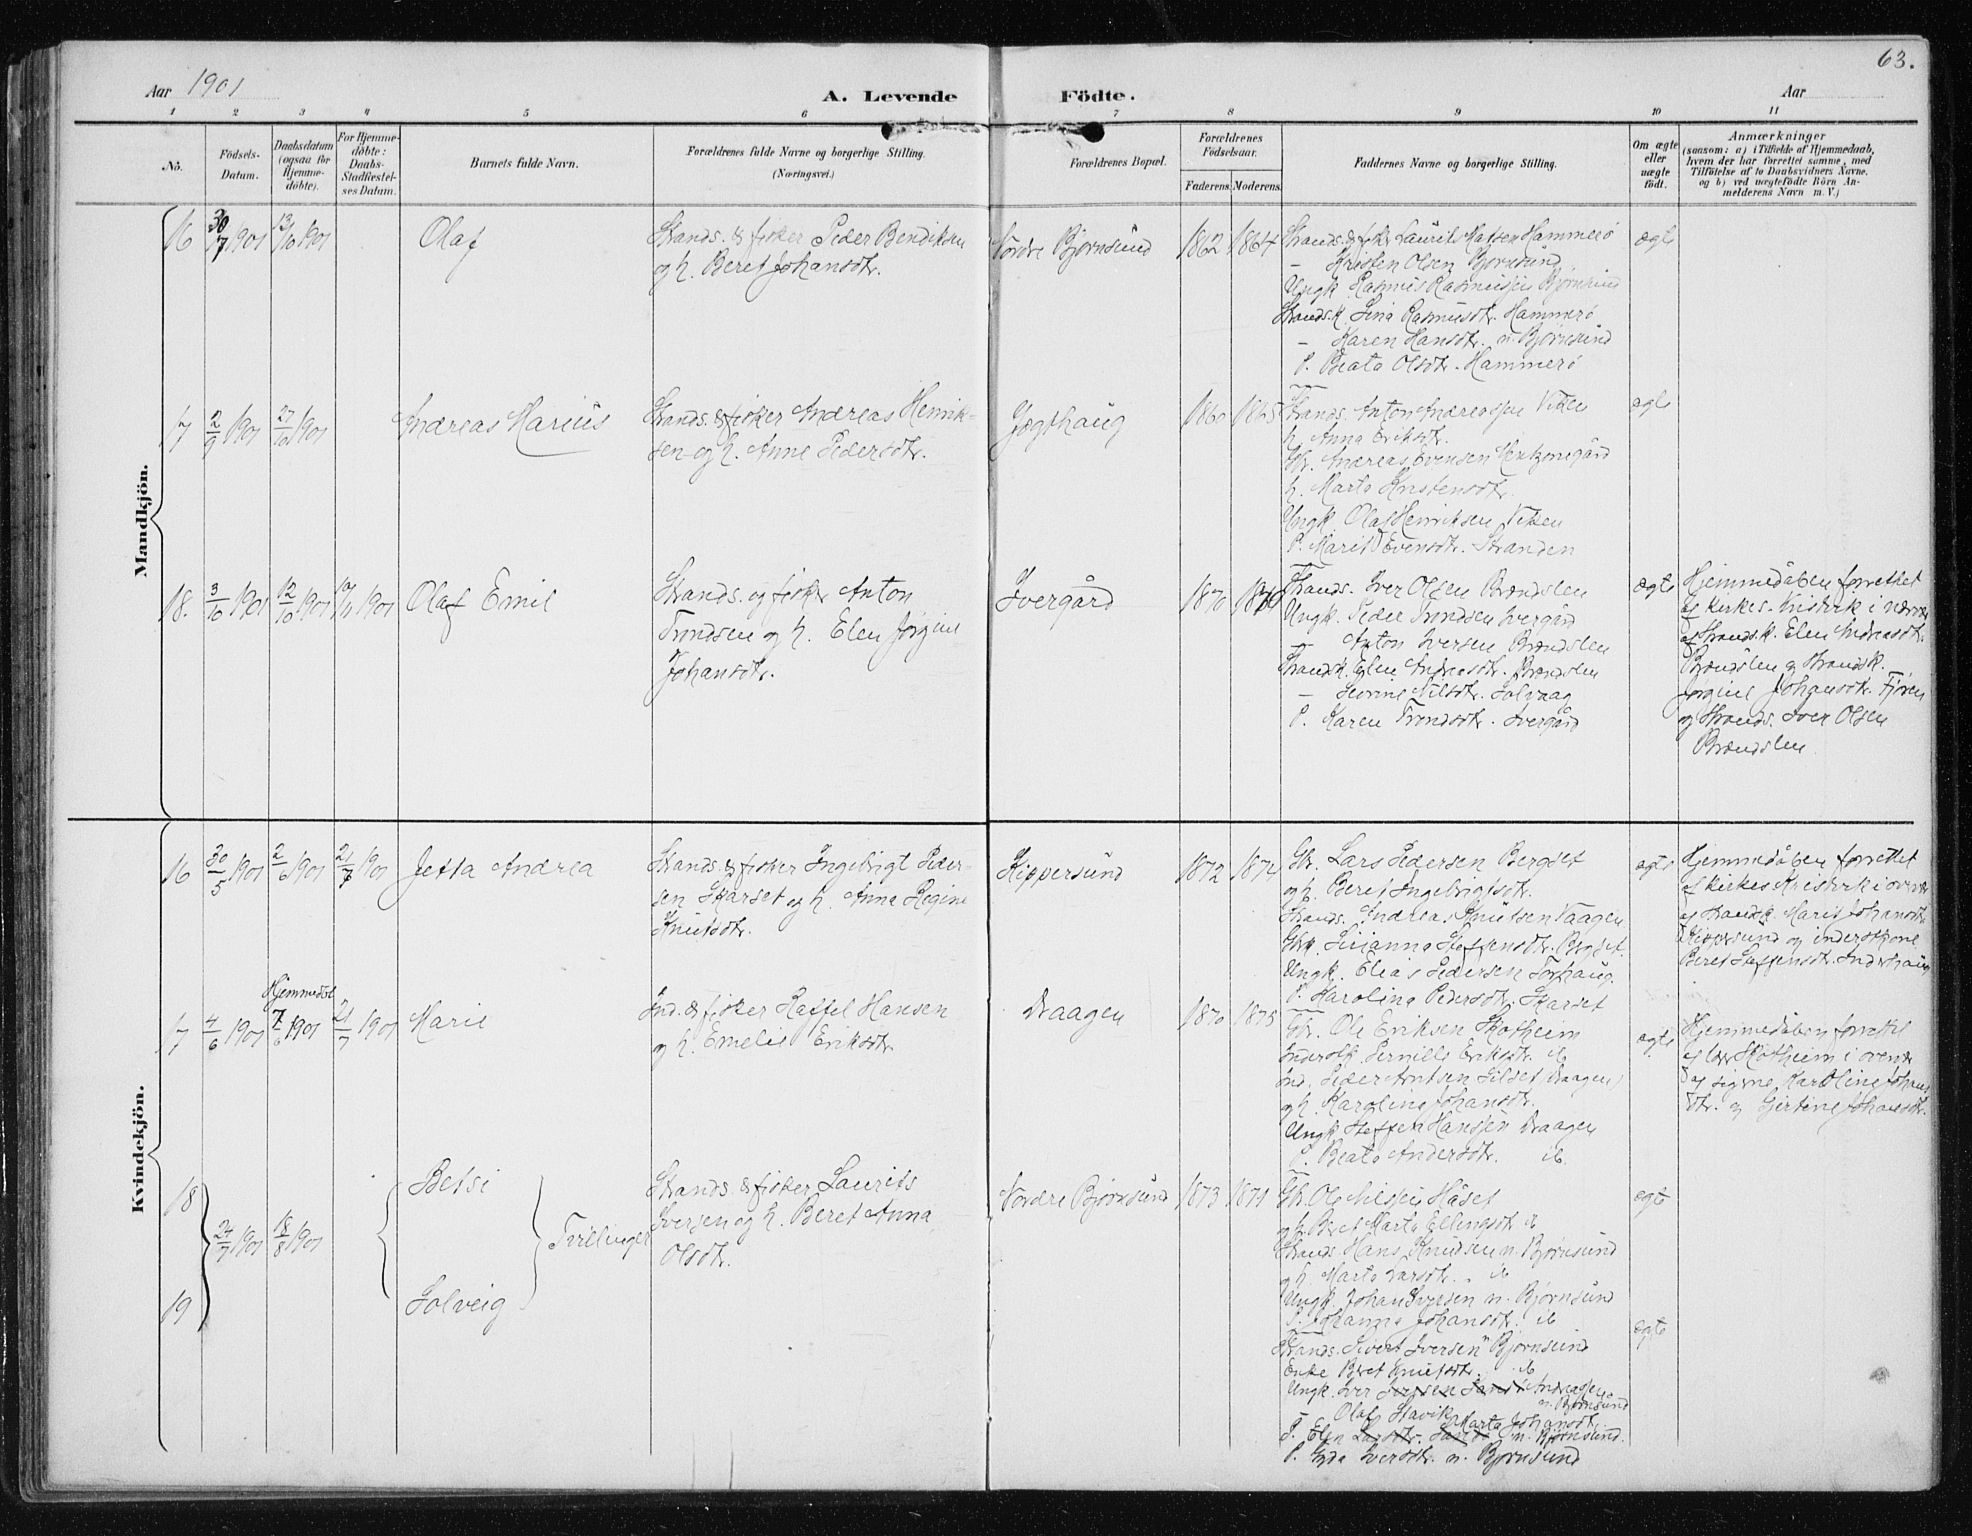 Aar 1901
A. Levende Födte.
63.
Aar
1 2 3 4 5 6 7 8 9 10 11
No.
Födsels-Datum.
Daabsdatum (ogsaa for Hjemme-döbte).
For Hjemme-döbte: Daabs-Stadfæstel-ses Datum.
Barnets fulde Navn.
Forældrenes fulde Navne og borgerlige Stilling.
(Næringsvei.)
Forældrenes Bopæl.
Forældrenes Födselsaar.
Faderens.
Moderens.
Faddernes Navne og borgerlige Stilling.
Om ægte eller uægte födt.
Anmærkninger
(saasom: a) i Tilfælde af Hjemmedaab,
hvem der har forrettet samme, med
Tilföielse af to Daabsvidners Navne.
og b) ved uægtefödte Börn An-
melderens Navn m. V.)
Mandkjön.
16 30/7 1901 13/10 1901 Olaf
Strands. & fisker Peder Bendiksen
og h. Beret Johansdtr.
Nordre Bjørnsund 1862 1864
Strands. & fisker Laurits Matsen Hammerø
– Kristen Olsen Bjørnsund
Ungk. Rasmus Rasmussen Bjørnsund
Strandsk. Lina Rasmusdtr. Hammerø
– Karen Hansdtr. n. Bjørnsund
P. Beata Olsdtr. Hammerø
ægte
17 2/9 1901 27/10 1901 Andreas Marius
Strands. & fisker Andreas Henrik-
sen og h. Anne Pedersdtr.
Jægthaug 1860 1865
Strands. Anton Andreassen Viken
h. Anna Eriksdtr.
Gbr. Andreas Evensen
h. Marta Kristensdtr.
Ungk. Olaf Henriksen Viken
P. Marit Evensdtr. Stranden
ægte
18. 3/10 1901 12/10 1901 1901 Olaf Emil
Strands. og fisker Anton
Trondsen og h. Elen Jørgine
Johansdtr.
Ivergård 1870
Strands. Iver Olsen Brændslen
Ungk. Peder Trondsen Ivergård
– Anton Iversen Brændslen
Strandsk. Elen Andreasdtr. Brændslen
– Nilsdtr. Solvaag
P. Karen Trondsdtr. Ivergård
ægte
Hjemmedåben forrettet
af kirkes. i nærvær
af Strandsk. Elen Andreasdtr.
Brændslen og Strandsk.
Jørgine Johansdtr. Fjøren
og Strands. Iver Olsen
Brændslen
Kvindekjön.
16 30/5 1901 2/6 1901 21/7 1901 Jetta Andrea
Strands. & fisker Ingebrigt Peder-
sen Skarset og h. Anna Regine
Knutsdtr.
Kippersund 1872 1874
Gbr. Lars Pedersen Bergset
og h. Beret Ingebrigtsdtr.
Strands. Andreas Knutsen Vaagen
Gbk. Steffensdtr. Bergset
Ungk. Elias Pedersen
P. Karolina Pedersdtr. Skarset
ægte
Hjemmedåben forrettet
af kirkes. i overvær
af Strandsk. Marit Johansdtr.
Kippersund og inderstkone
Beret Steffensdtr. Inderhaug
17 4/6 1901 Hjemmedøbt 7/6 1901 21/7 1901 Marie
Ind. & fisker Raffel Hansen
og h. Emelie Eriksdtr.
Draagen 1870 1875
Gbr. Ole Eriksen Skotheim
Inderstk. Pernille Eriksdtr. ib
Ind. Peder Arntsen Silset (Draagen)
og h. Karoline Johansdtr.
Ungk. Steffen Hansen Draagen
P. Beate Andersdtr. ib
ægte
Hjemmedåben forrettet
af lær. Skotheim i overvær
af pigerne Karoline Johans
dtr. og Gjertine Johansdtr.
18 Betsi
24/7 1901 18/8 1901 Tvillinger
19 Solveig
Strands. & fisker Laurits
Iversen og h. Beret Anna
Olsdtr.
Nordre Bjørnsund 1873 1871
Gbr. Ole Nilssen Håset
og h. Beret Marta Ellingsdtr. ib
Strands. Hans Knudsen n. Bjørnsund
og h. Marta Larsdtr. ib
Ungk. Johan Iversen n. Bjørnsund
P. Johanna Johansdtr. ib
ægte
Strands. Sivert Iversen Bjørnsund
Enke Beret Knutsdtr. ib
Ungk. Iver Andreassen
n. Bjørnsund
– Olaf Stavik
P. Elen Marta Johansdtr.
n. Bjørnsund.
P. Gyda Iversdtr. n. Bjørnsund
ægte